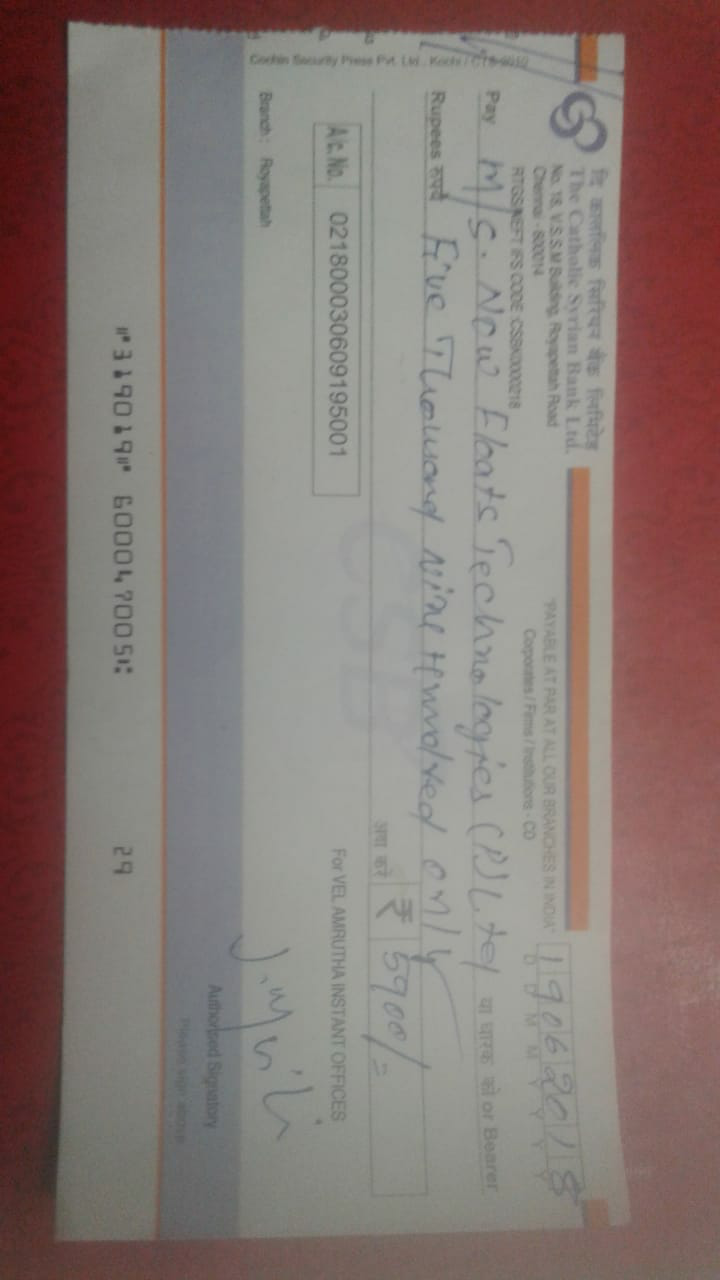 दि काथलिक सिरियन बैंक लिमिटेड
The Catholic Syrian Bank Ltd.
No. 18, V.S.S.M Building, Royapettah Road
Chennai - 600014
RTGS/NEFT IFS CODE :CSBK0000218
"PAYABLE AT PAR AT ALL OUR BRANCHES IN INDIA"
Corporates / Firms / Institutions - CD
19062018
D D M M Y Y Y Y
Pay M/s. Now Floats Technologies (P) Ltd या धारक को or Bearer
Rupees रुपये Five Thousand Nine Hundred only
अदा करें ₹ 5900/=
A/c. No. 021800030609195001
For VEL AMRUTHA INSTANT OFFICES
Branch : Royapettah
Authorised Signatory
Please sign above
Cochin Security Press Pvt. Ltd., Kochi / CTS-2010
CSB
⑈319019⑈ 600047005⑆ 29